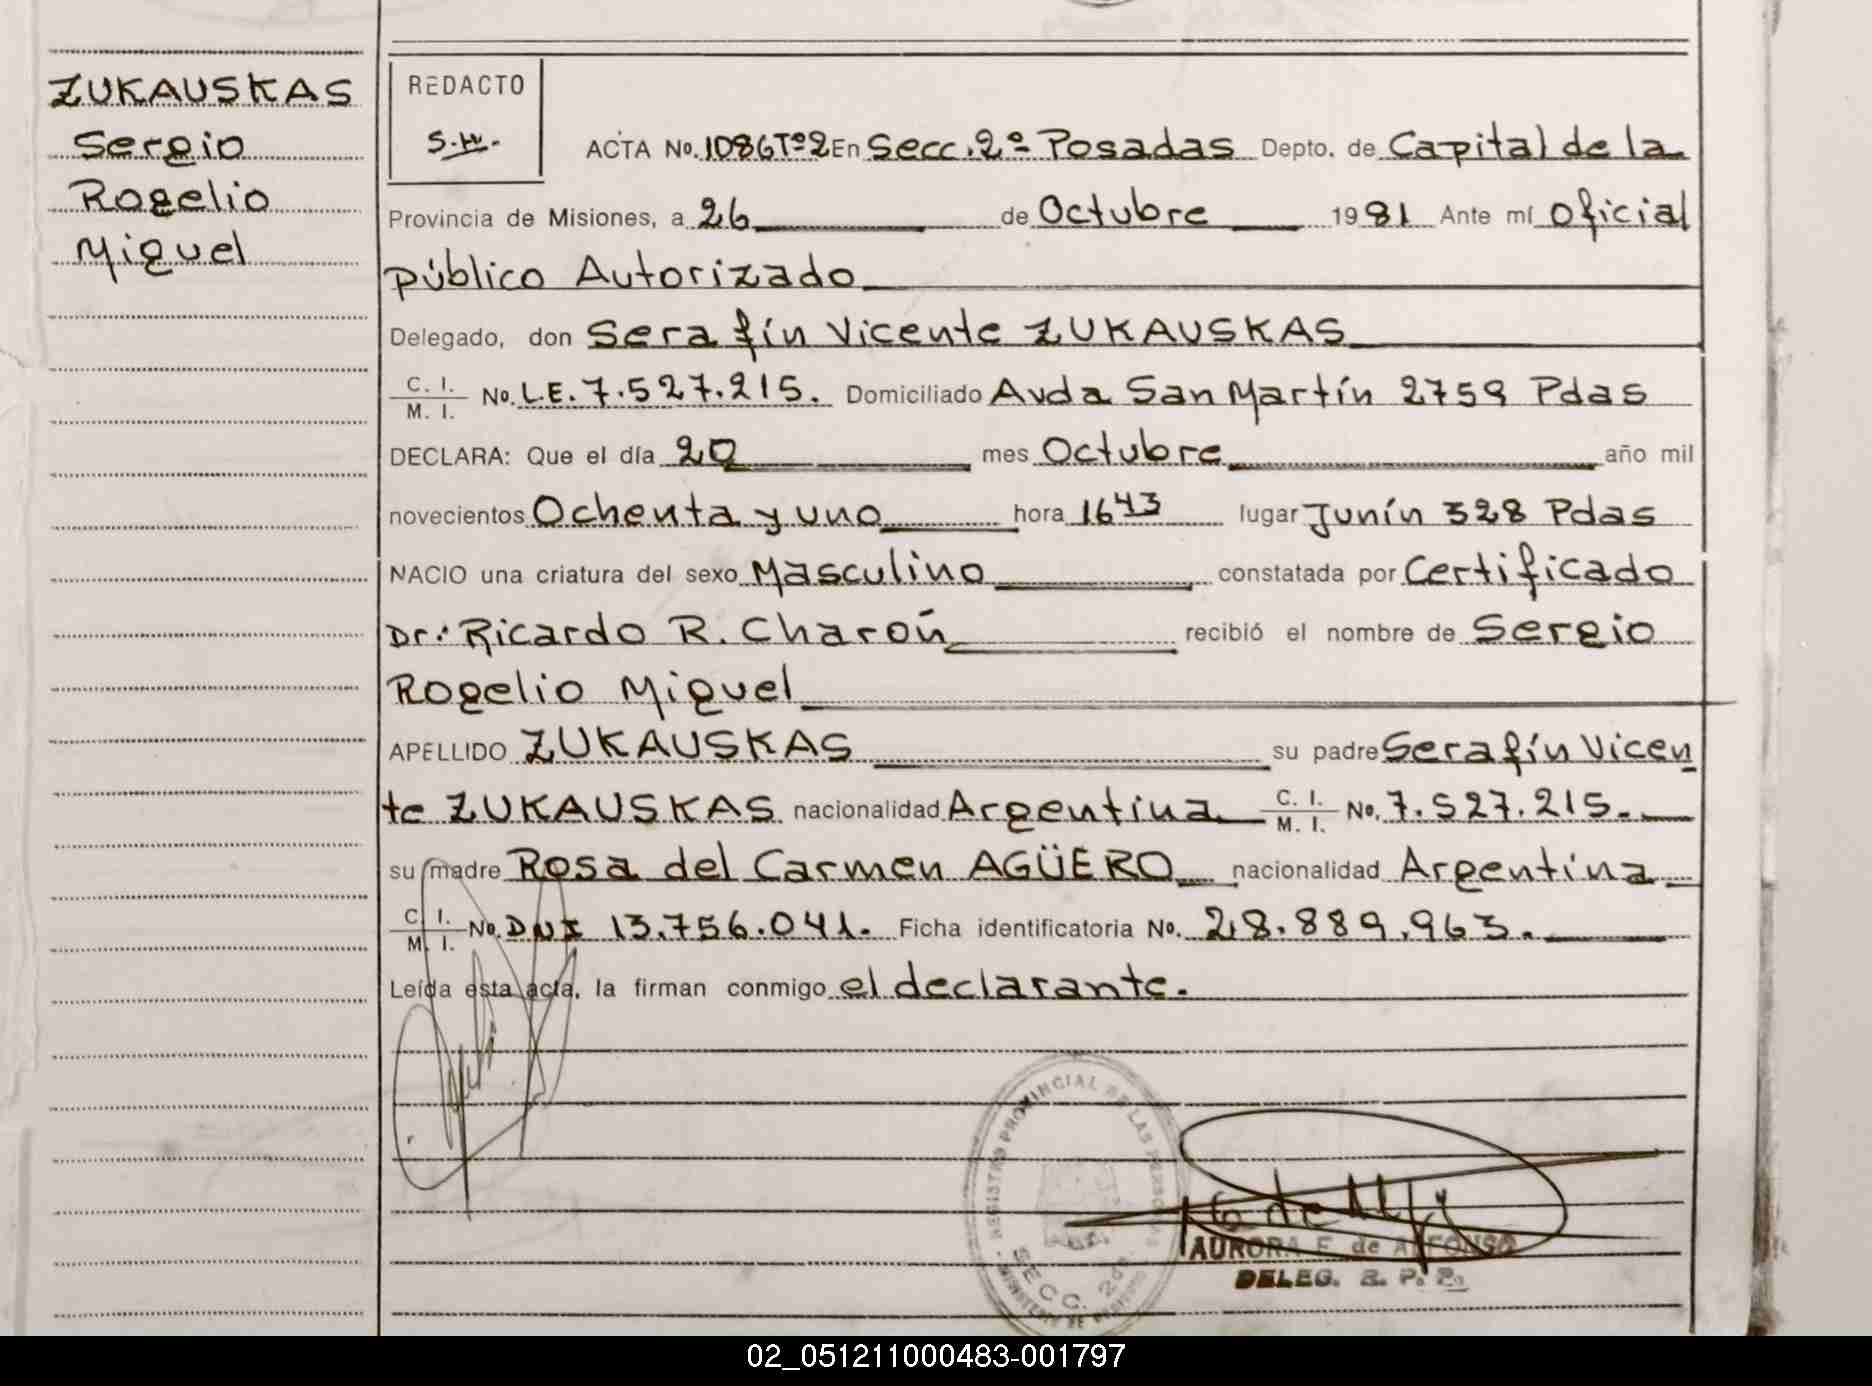 ZUKAUSKAS
Sergio
Rogelio
Miguel
REDACTO
S.H.
ACTA No. 1086 Tº 2 En Secc. 2º Posadas Depto. de Capital de la
Provincia de Misiones, a 26 de Octubre 1981 Ante mí Oficial
Público Autorizado
Delegado, don Serafín Vicente ZUKAUSKAS
C. I. / M. I. No. L.E. 7.527.215. Domiciliado Avda San Martín 2759 Pdas
DECLARA: Que el día 20 mes Octubre año mil
novecientos Ochenta y uno hora 16 43 lugar Junín 328 Pdas
NACIO una criatura del sexo Masculino constatada por Certificado
Dr: Ricardo R. Charón recibió el nombre de Sergio
Rogelio Miguel
APELLIDO ZUKAUSKAS su padre Serafín Vicen
te ZUKAUSKAS nacionalidad Argentina C. I. / M. I. No. 7.527.215.
su madre Rosa del Carmen AGÜERO nacionalidad Argentina
C. I. / M. I. No. DNI 13.756.041. Ficha identificatoria No. 28.889.963.
Leída esta acta, la firman conmigo el declarante.
REGISTRO PROVINCIAL DE LAS PERSONAS
SECC. 2da
AURORA F. de ALFONSO
DELEG. R. P. P.
02_051211000483-001797